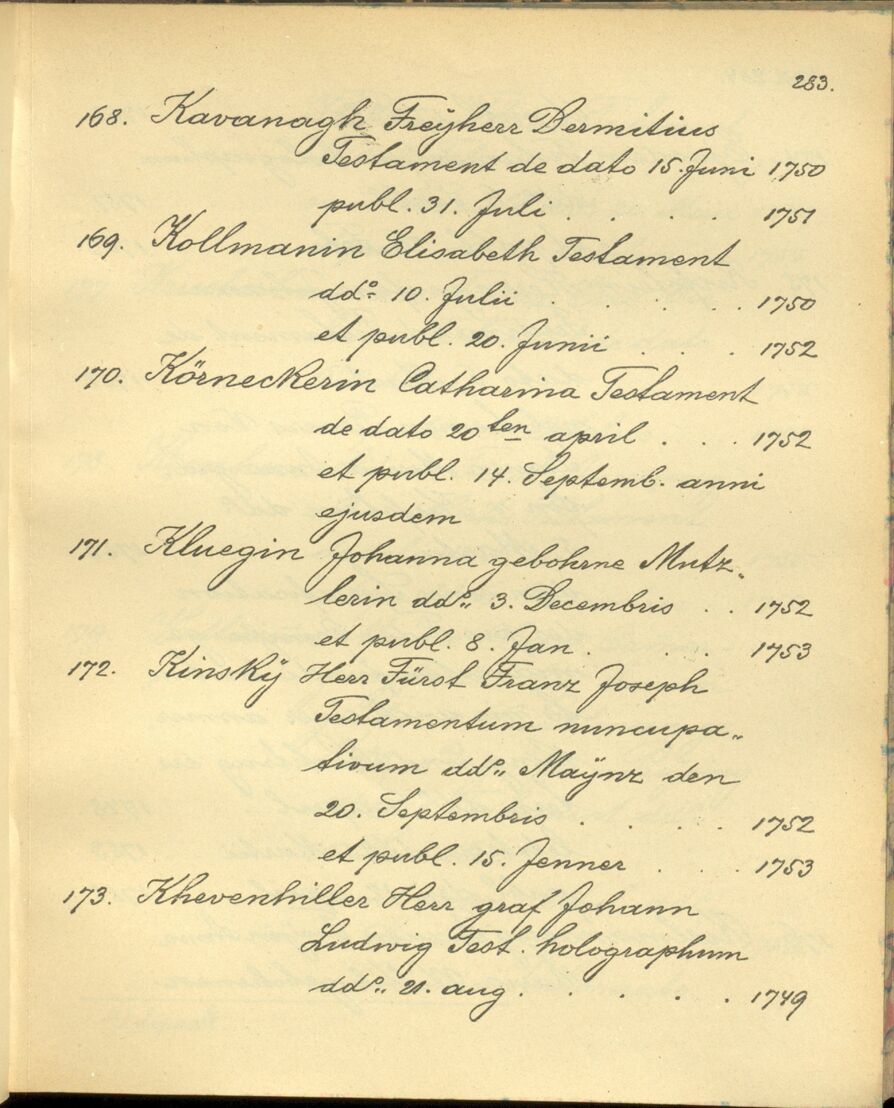 283.
168. Kavanagh Freÿherr Dermitius
Testament de dato 15. Juni 1750
publ. 31. Juli . . . . 1751
169. Kollmanin Elisabeth Testament
ddo 10. Julii . . . . . 1750
et publ. 20. Junii . . . 1752
170. Körneckerin Catharina Testament
de dato 20ten april . . . 1752
et publ. 14. Septemb. anni
ejusdem
171. Kluegin Johanna gebohrne Mutz„
lerin ddo„ 3. Decembris . . 1752
et publ. 8. Jan . . . . 1753
172. Kinskÿ Herr Fürst Franz Joseph
Testamentum nuncupa„
tivum ddo„ Maÿnz den
20. Septembris . . . . 1752
et publ. 15. Jenner . . . 1753
173. Khevenhiller Herr graf Johann
Ludwig Test. holographum
ddo„ 21. aug . . . . . 1749